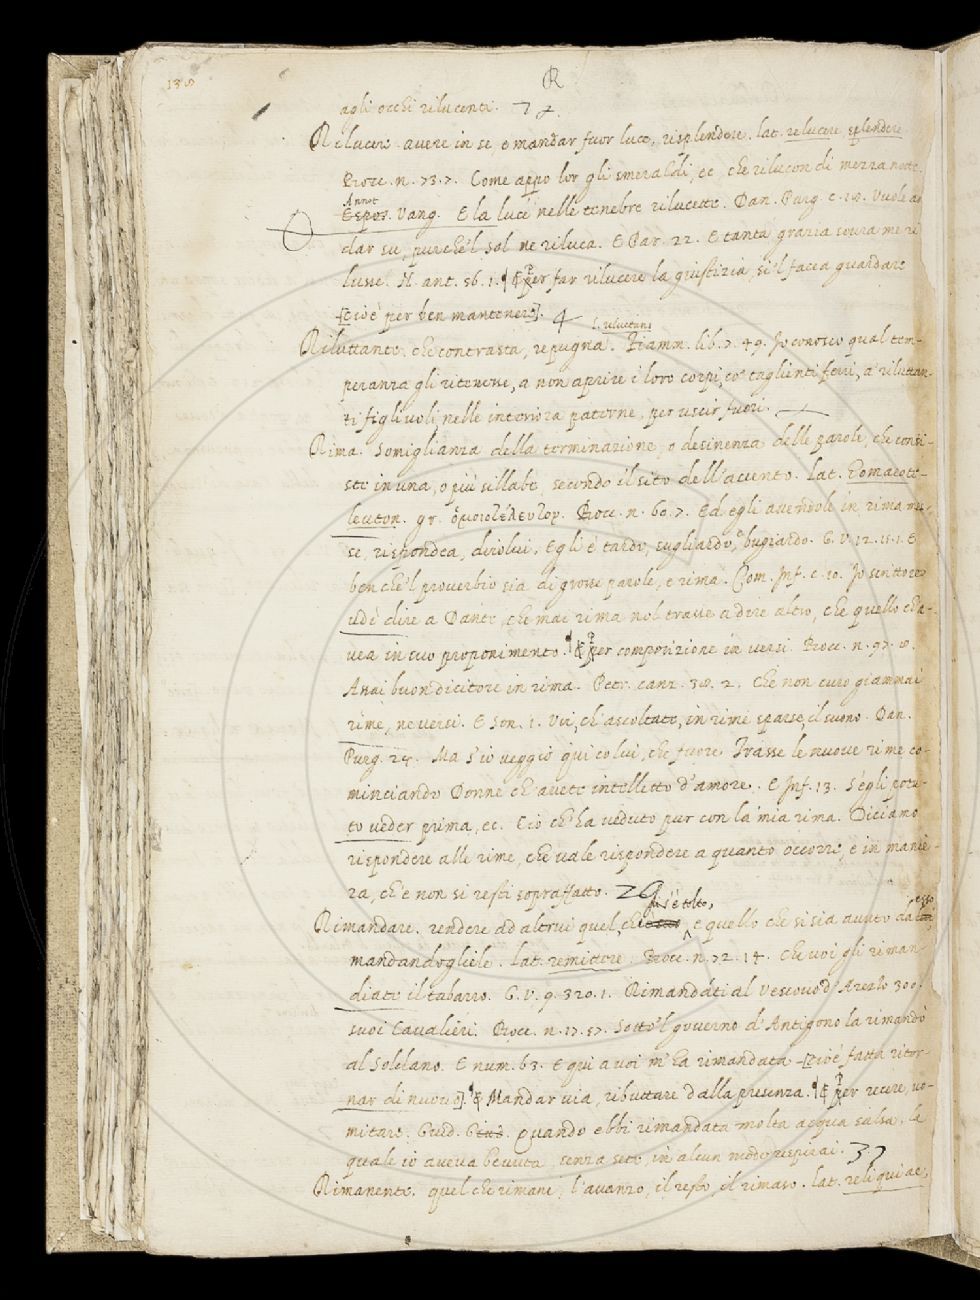 138
R
agli occhi rilucenti. 7 2.
Rilucere. avere in se, e mandar fuor luce, risplendere. lat. relucere, splendere.
Bocc. n. 73. 7. Come appo lor gli smeraldi, ec, che rilucon di mezza notte.
Annot
Espos. Vang. E la luce nelle tenebre rilucette. Dan. Purg. c. 18. Vuole an
dar su, purchè 'l Sol ne riluca. E Par. 22. E tanta grazia sovra me ri
lusse. N. ant. 56. 1. ¶ E per far rilucere la giustizia, si 'l facea guardare
[cioè per ben mantenere]. 4
l. reluctans
Riluttante. che contrasta, repugna. Fiamm. lib. 7. 49. Io conosco qual tem-
peranza gli ritenesse, a non aprire i loro corpi, co' taglienti ferri, a' riluttan-
ti figlivoli, nelle interiora paterne, per uscir fuori.
Rima. Somiglianza della terminazione, o desinenza delle parole, che consi-
ste in una, o più sillabe, secondo il sito dell' accento. Lat. homaeote-
leuton. gr. ὁμοιοτέλευτον. Bocc. n. 60. 7. Ed egli avendole in rima mes-
se, rispondea, dirolvi. Egli è tardo, sugliardo, e bugiardo. G. V. 12. 15. 1. E
benche 'l proverbio sia di grosse parole, e rima. Com. Inf. c. 10. Io scrittore
udi dire a Dante, che mai rima nol trasse a dire altro, che quello ch' a-
vea in suo proponimento. ¶ E per composizione in versi. Bocc. n. 97. 8.
Assai buon dicitore in rima. Petr. canz. 38. 2. Che non curo giammai
rime, ne versi. E Son. 1. Voi, ch' ascoltate, in rime sparse, il suono. Dan.
Purg. 24. Ma s' io veggio qui colui, che fuore Trasse le nuove rime co-
minciando Donne ch' avete intelletto d' amore. E Inf. 13. S' egli potu-
to veder prima, ec. Ciò ch' ha veduto pur con la mia rima. Diciamo
rispondere alle rime, che vale rispondere a quanto occorre, e in manie-
ra, ch' e non si resti sopraffatto. 26
gli s' è tolto,
esso
Rimandare. rendere ad altrui quel, che e quello che si sia avuto da
mandandogliele. lat. remittere. Bocc. n. 72. 14. Che voi gli riman-
diate il tabarro. G. V. 9. 320. 1. Rimandati al Vescovo d' Arezzo 300.
suoi Cavalieri. Bocc. n. 17. 57. Sotto 'l governo d' Antigono la rimandò
al Soldano. E num. 63. E qui a voi m' ha rimandata [cioè fatta ritor-
nar di nuovo]. ¶ E Mandar via, ributtare dalla presenza. ¶ E per recere, vo-
mitare. Guid. Giud. quando ebbi rimandata molta acqua salsa, la
quale io aveva bevuta, senza sete, in alcun modo respirai. 37
Rimanente. quel che rimane, l' avanzo, il resto, il rimaso. lat. reliquiae,